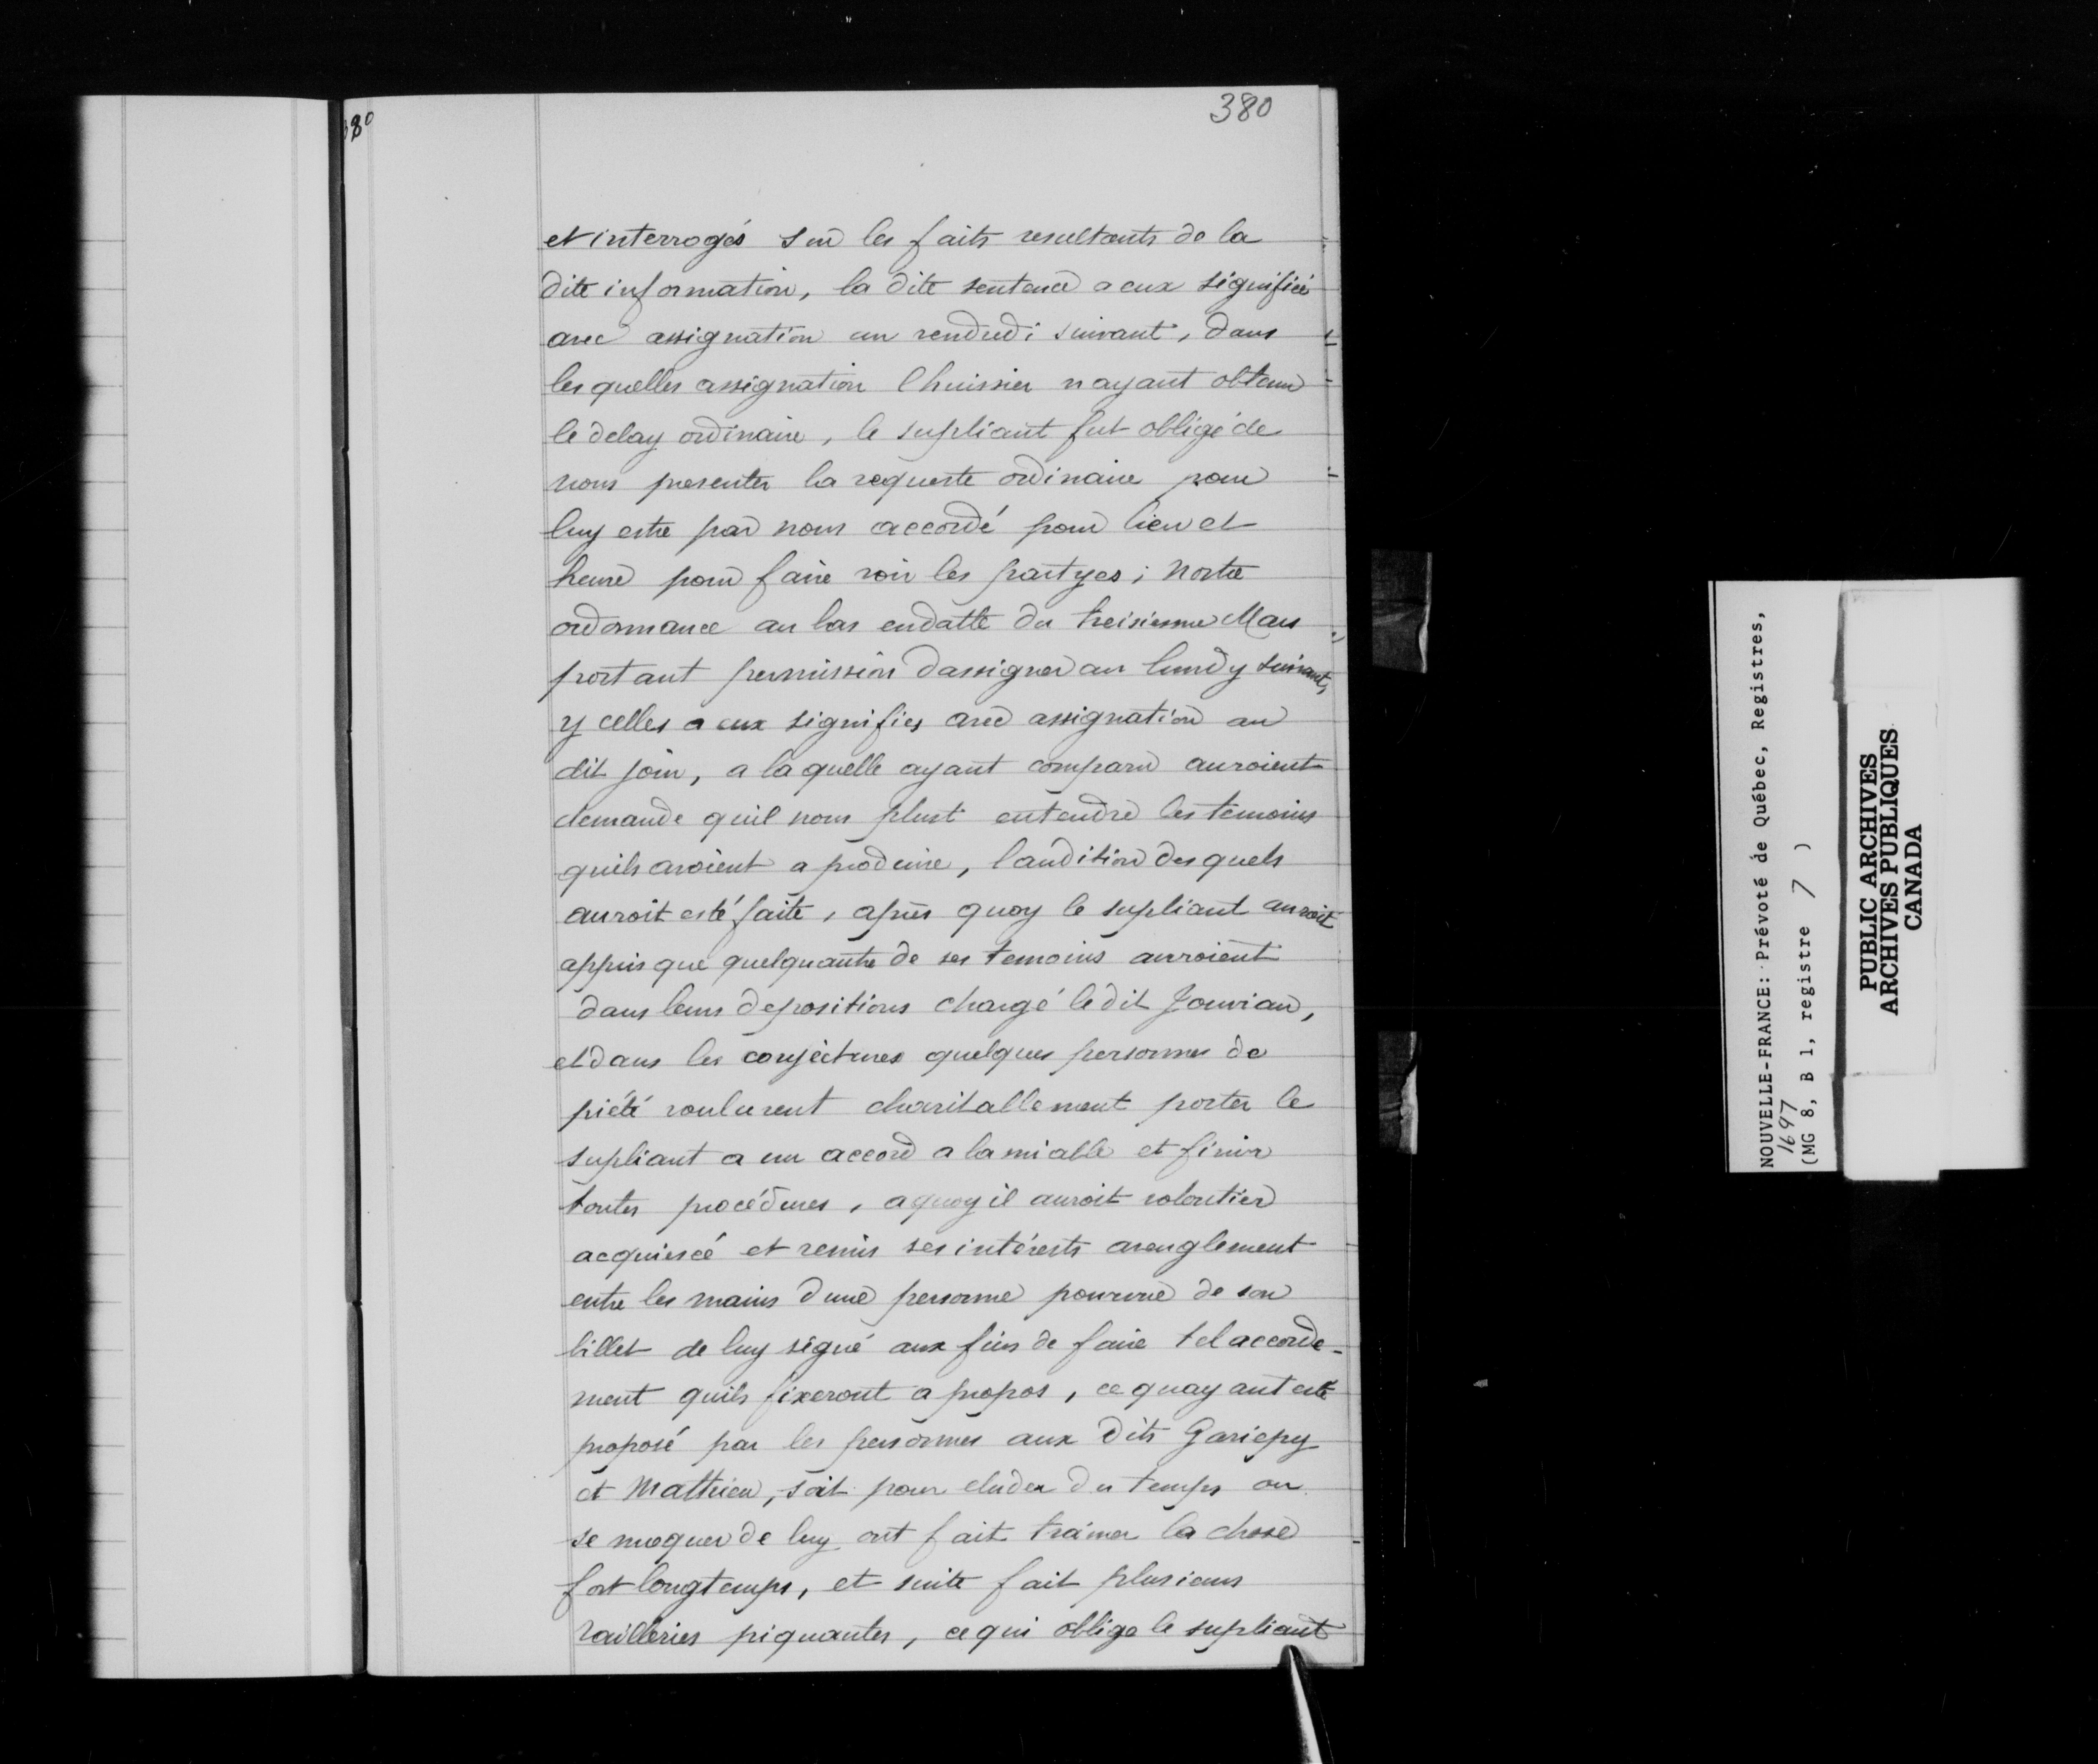 380
et interrogés sur les faits resultants de la
dite information, la dite sentence a eux signifiée
avec assignation au vendredi suivant, dans
les quelles assignation l huissier n ayant obtenu
le delay ordinaire, le supliant fut obligé de
nous presenter la requeste ordinaire pour
luy estre par nous accordé pour lieu et
heure pour faire voir les partyes ; nostre
ordonnance au bas en datte du treisiesme Mars
portant permission dassigner au lundy suivant,
y celles a eux signifies avec assignation au
dit jour, a la quelle ayant comparu auroient
demande quil nous plust entendre les temoins
quils avoient a produire, laudition des quels
auroit esté faite, après quoy le supliant auroit
appris que quelquautre de ses temoins auroient
dans leurs depositions chargé le dit Jouvian,
et dans les conjectures quelques personnes de
piété voulurent charitablement porter le
supliant a un accord a lamiable et finir
toutes procédures, a quoy il auroit volontier
acquiescé et remis ses intérests aveuglement
entre les mains dune personne pourvue de son
billet de luy signé aux fins de faire tel accorde-
ment quils fixeront a propos, ce quayant esté
proposé par les personnes aux dits Gariepy
et Mathieu, soit pour eluder du temps ou
se moquer de luy ont fait traîner la chose
fort longtemps, et suite fait plusieurs
railleries piquantes, ce qui oblige le supliant
NOUVELLE-FRANCE: Prévoté de Québec, Registres,
1697
(MG 8, B 1, registre 7 )
PUBLIC ARCHIVES
ARCHIVES PUBLIQUES
CANADA